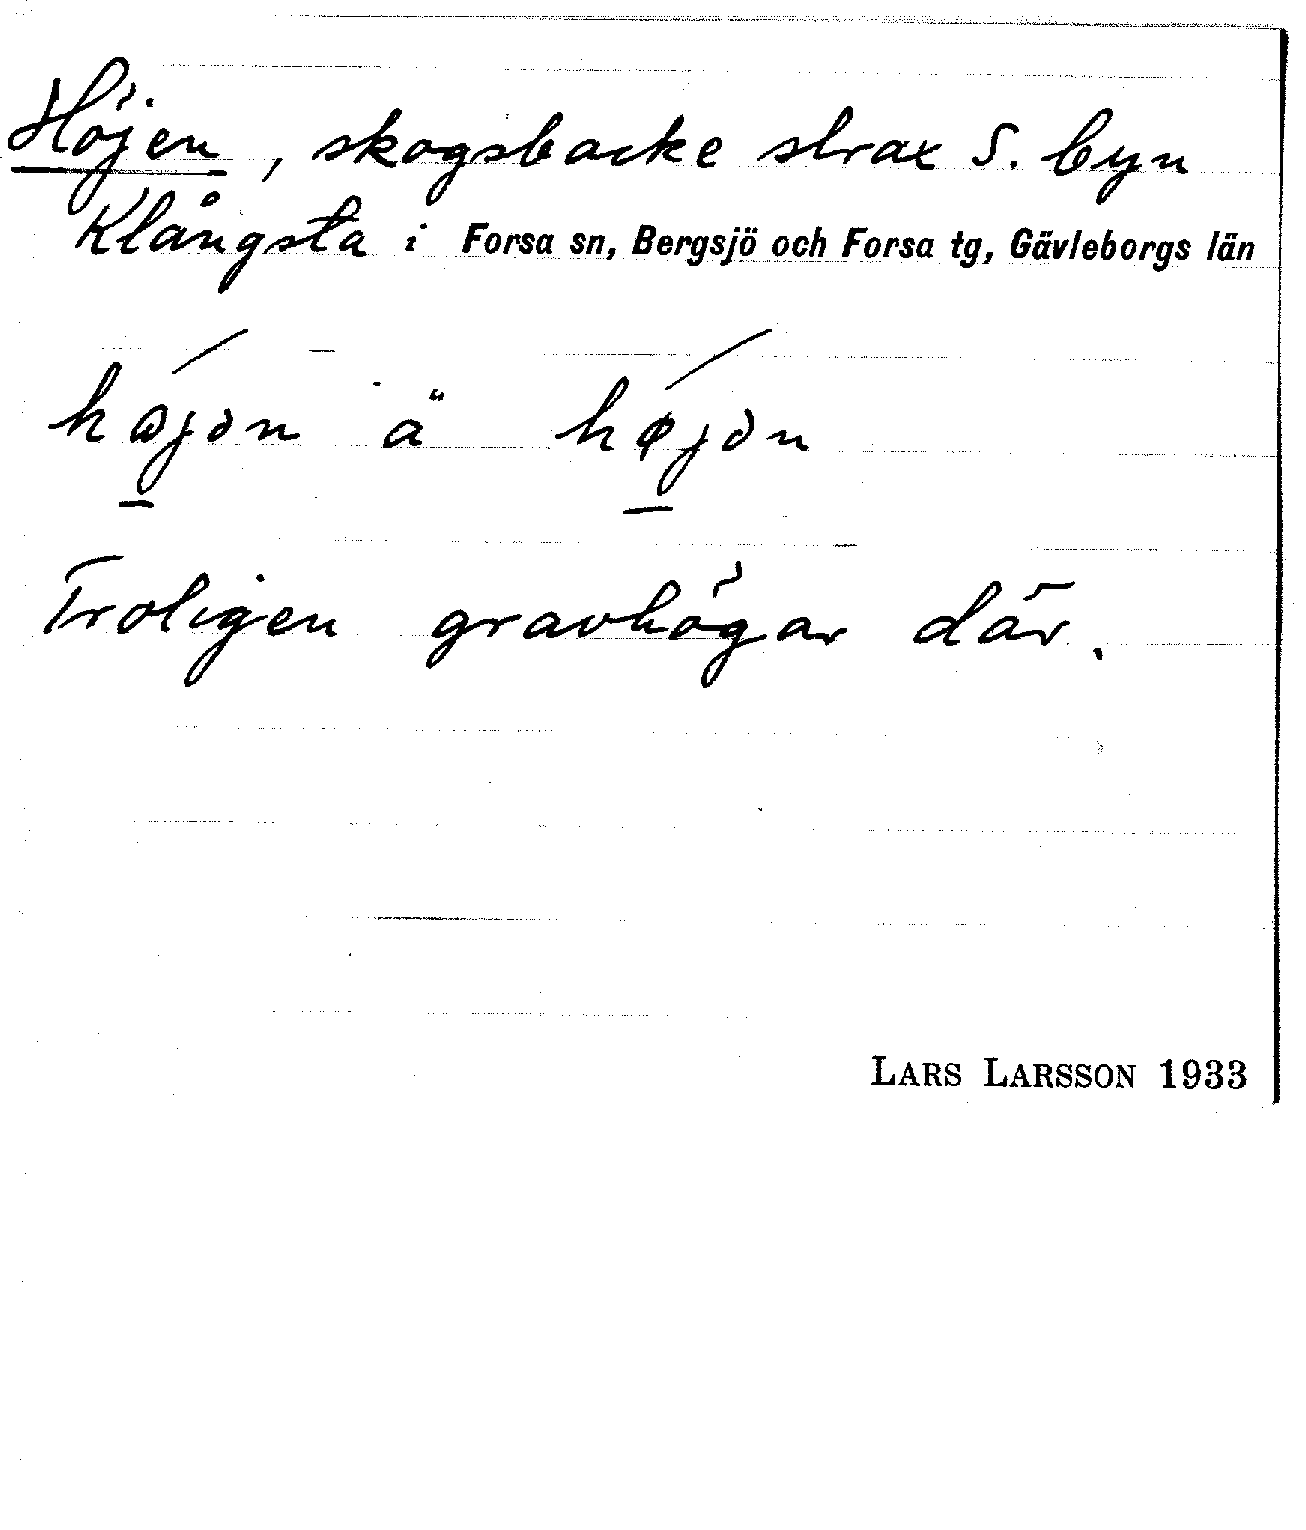 Höjen, skogsbacke strax S. byn
Klångsta i Forsa sn, Bergsjö och Forsa tg, Gävleborgs län
ä
Troligen gravhögar där.
LARS LARSSON 1933